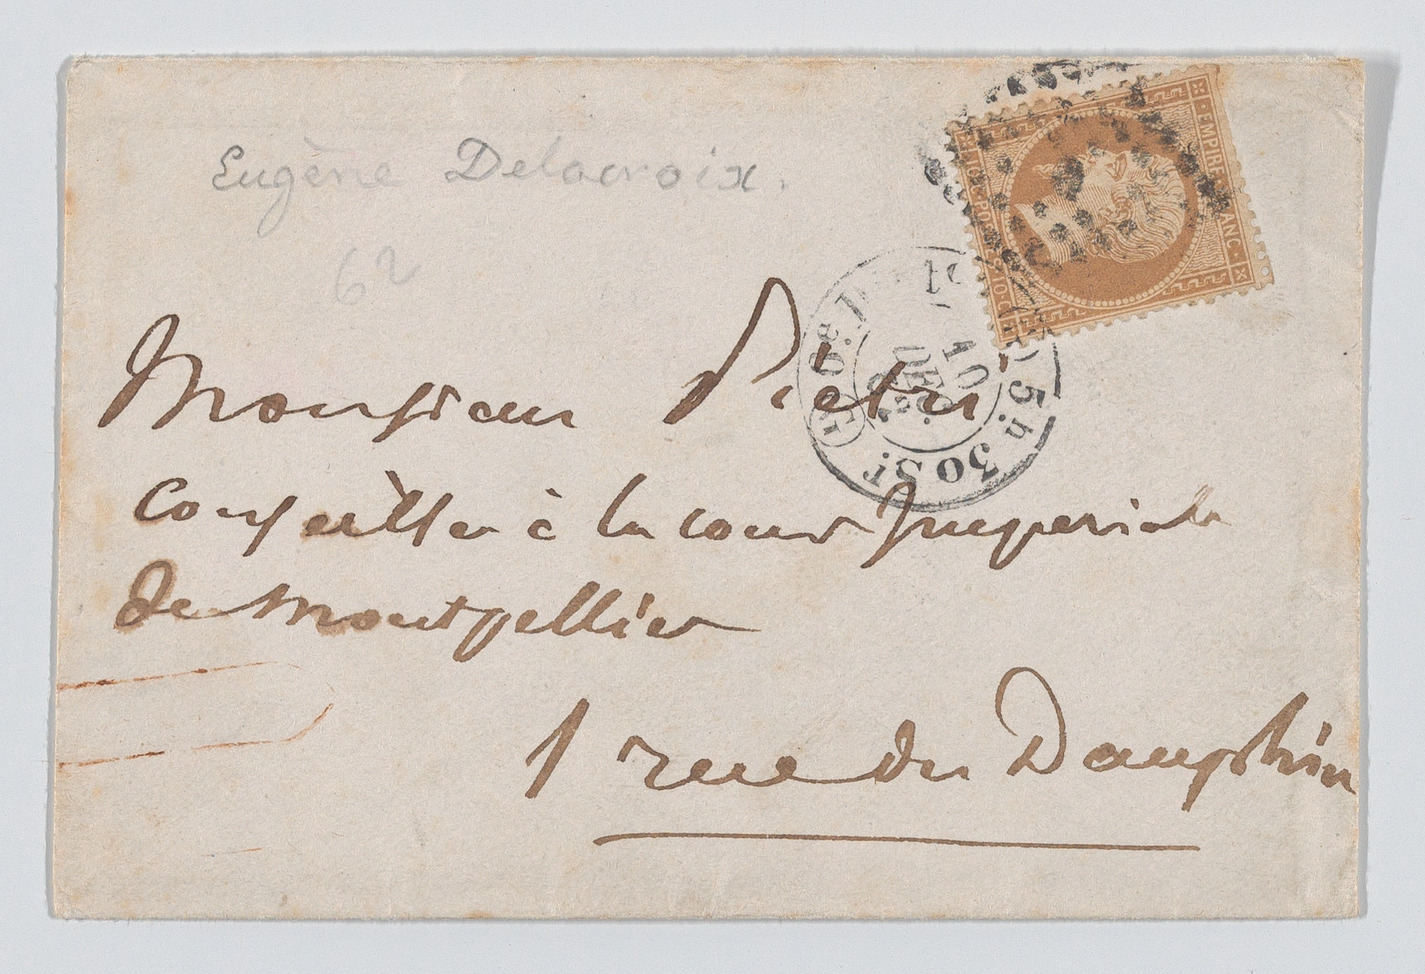 Eugène Delacroix.
62
EMPIRE FRANC
10 C
10
DEC
5h 30 Sr
Monsieur Pietri
conseiller à la cour Imperiale
de Montpellier
1 rue du Dauphin